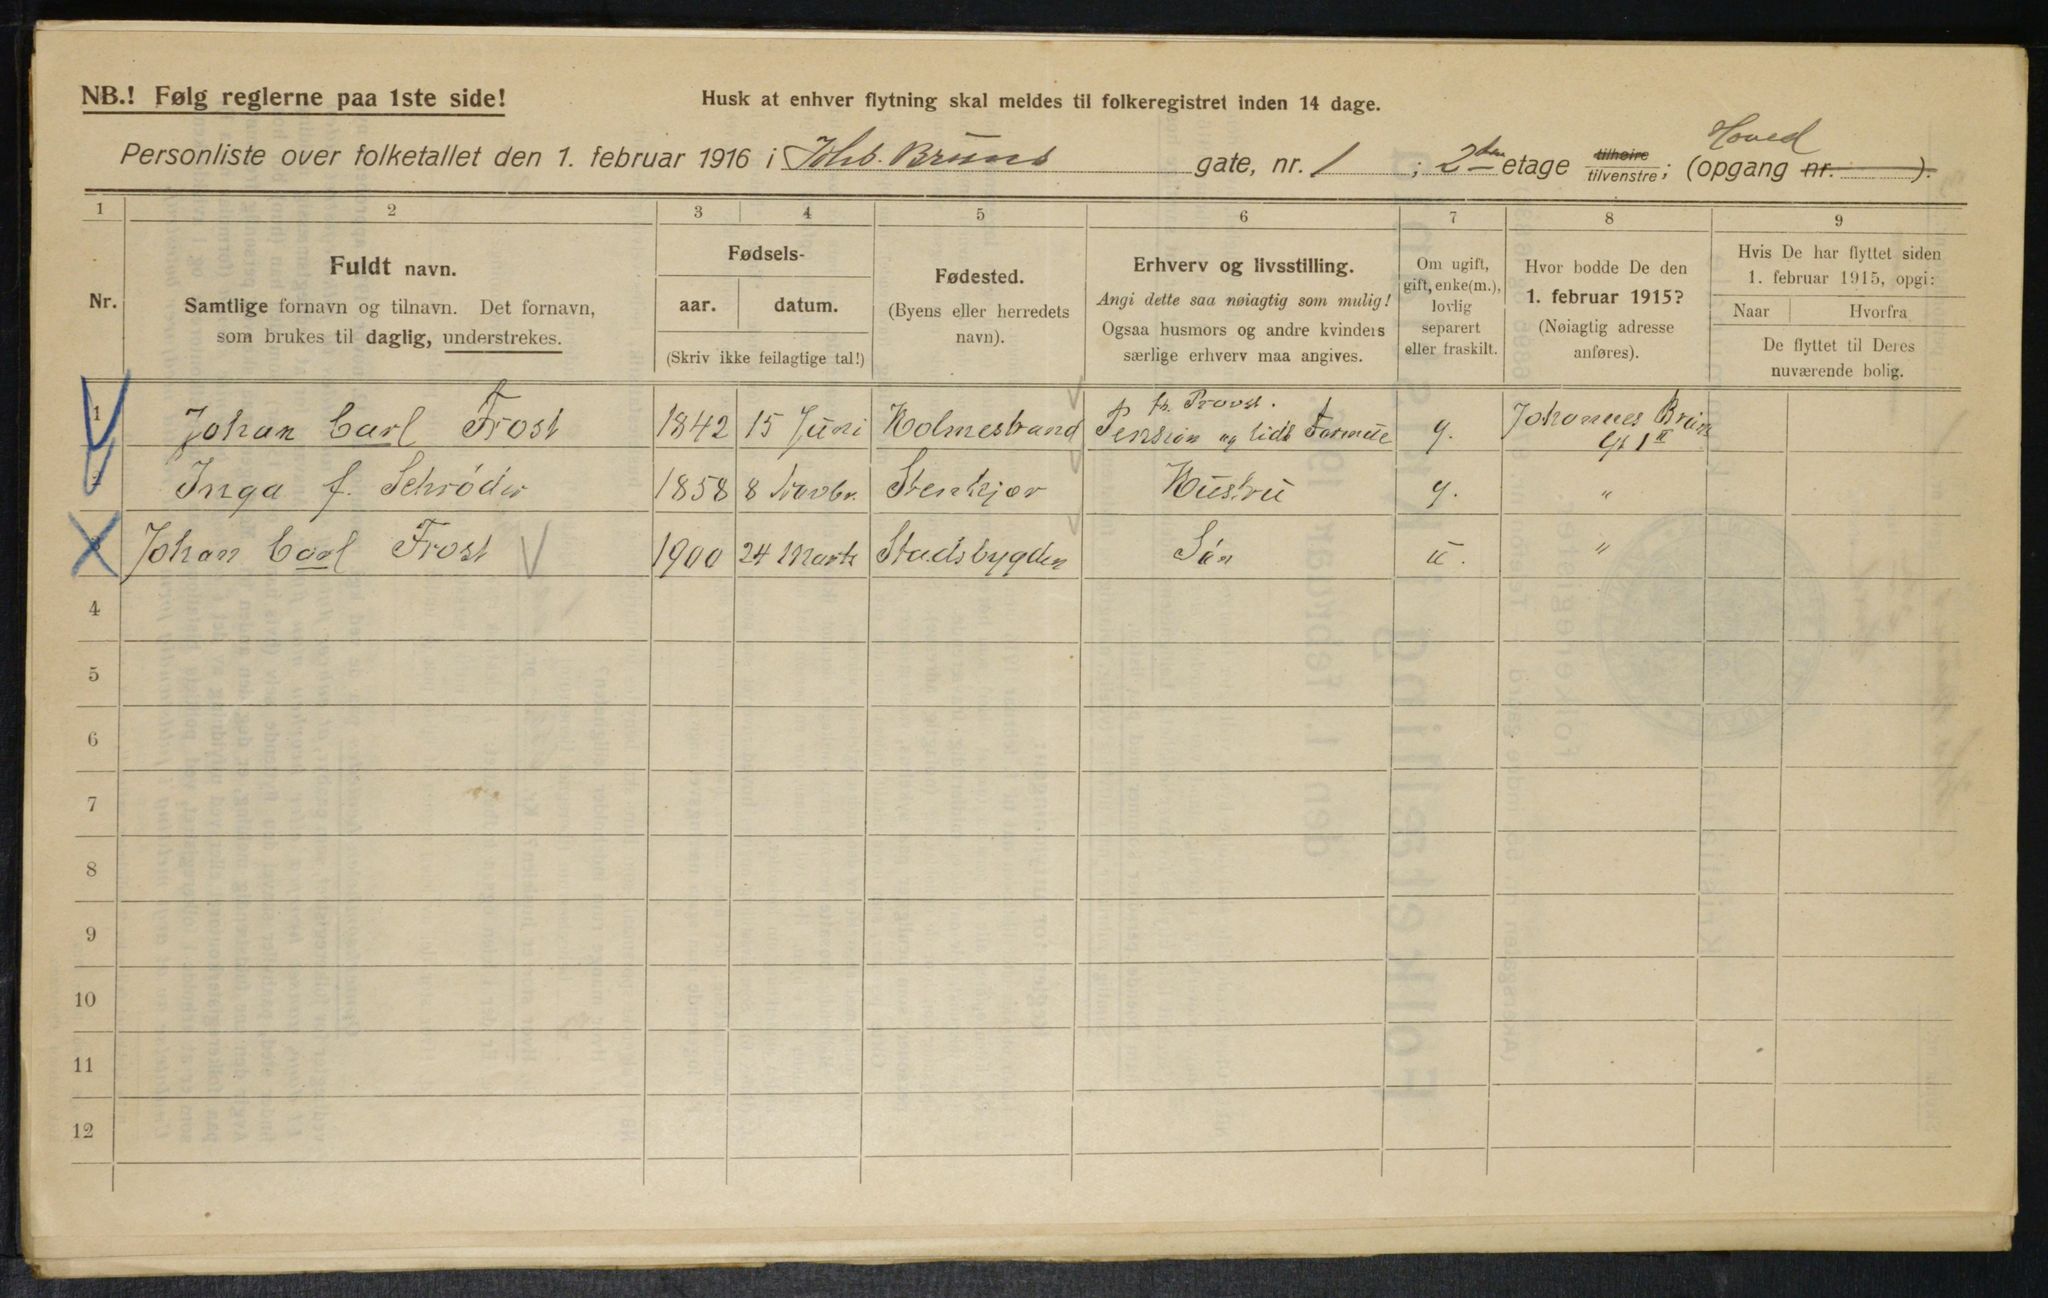 NB.! Følg reglerne paa 1ste side!
Husk at enhver flytning skal meldes til folkeregistret inden 14 dage.
Personliste over folketallet den 1. februar 1916 i Johs. Bruns gate, nr. 1 ; 2den etage tilhøire tilvenstre; (opgang nr. ). Hoved
1 2 3 4 5 6 7 8 9
Nr.
Fuldt navn.
Samtlige fornavn og tilnavn. Det fornavn,
som brukes til daglig, understrekes.
Fødsels-
aar. datum.
(Skriv ikke feilagtige tal!)
Fødested.
(Byens eller herredets
navn).
Erhverv og livsstilling.
Angi dette saa nøiagtig som mulig!
Ogsaa husmors og andre kvinders
særlige erhverv maa angives.
Om ugift,
gift, enke(m.),
lovlig
separert
eller fraskilt.
Hvor bodde De den
1. februar 1915?
(Nøiagtig adresse
anføres).
Hvis De har flyttet siden
1. februar 1915, opgi:
Naar Hvorfra
De flyttet til Deres
nuværende bolig.
1 Johan Carl Frost 1842 15 Juni Holmestrand fh. Provst. Pension og lidt Formue g. Johannes Bruns Gt 1 II
2 Inga f. Schrøder 1858 8 Novbr. Stenkjær Hustru g. "
3 Johan Carl Frost 1900 24 Marts Stadsbygden Søn u. "
4
5
6
7
8
9
10
11
12